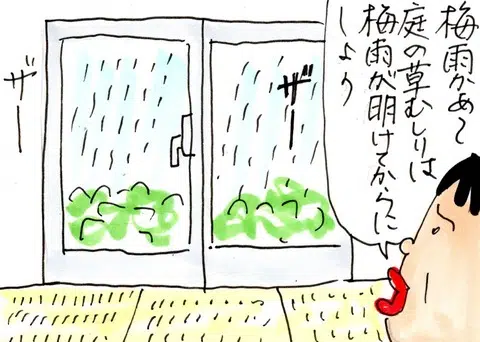 梅雨かあ〜
庭の草むしりは
梅雨が明けてからに
しよう
ザー
ザー